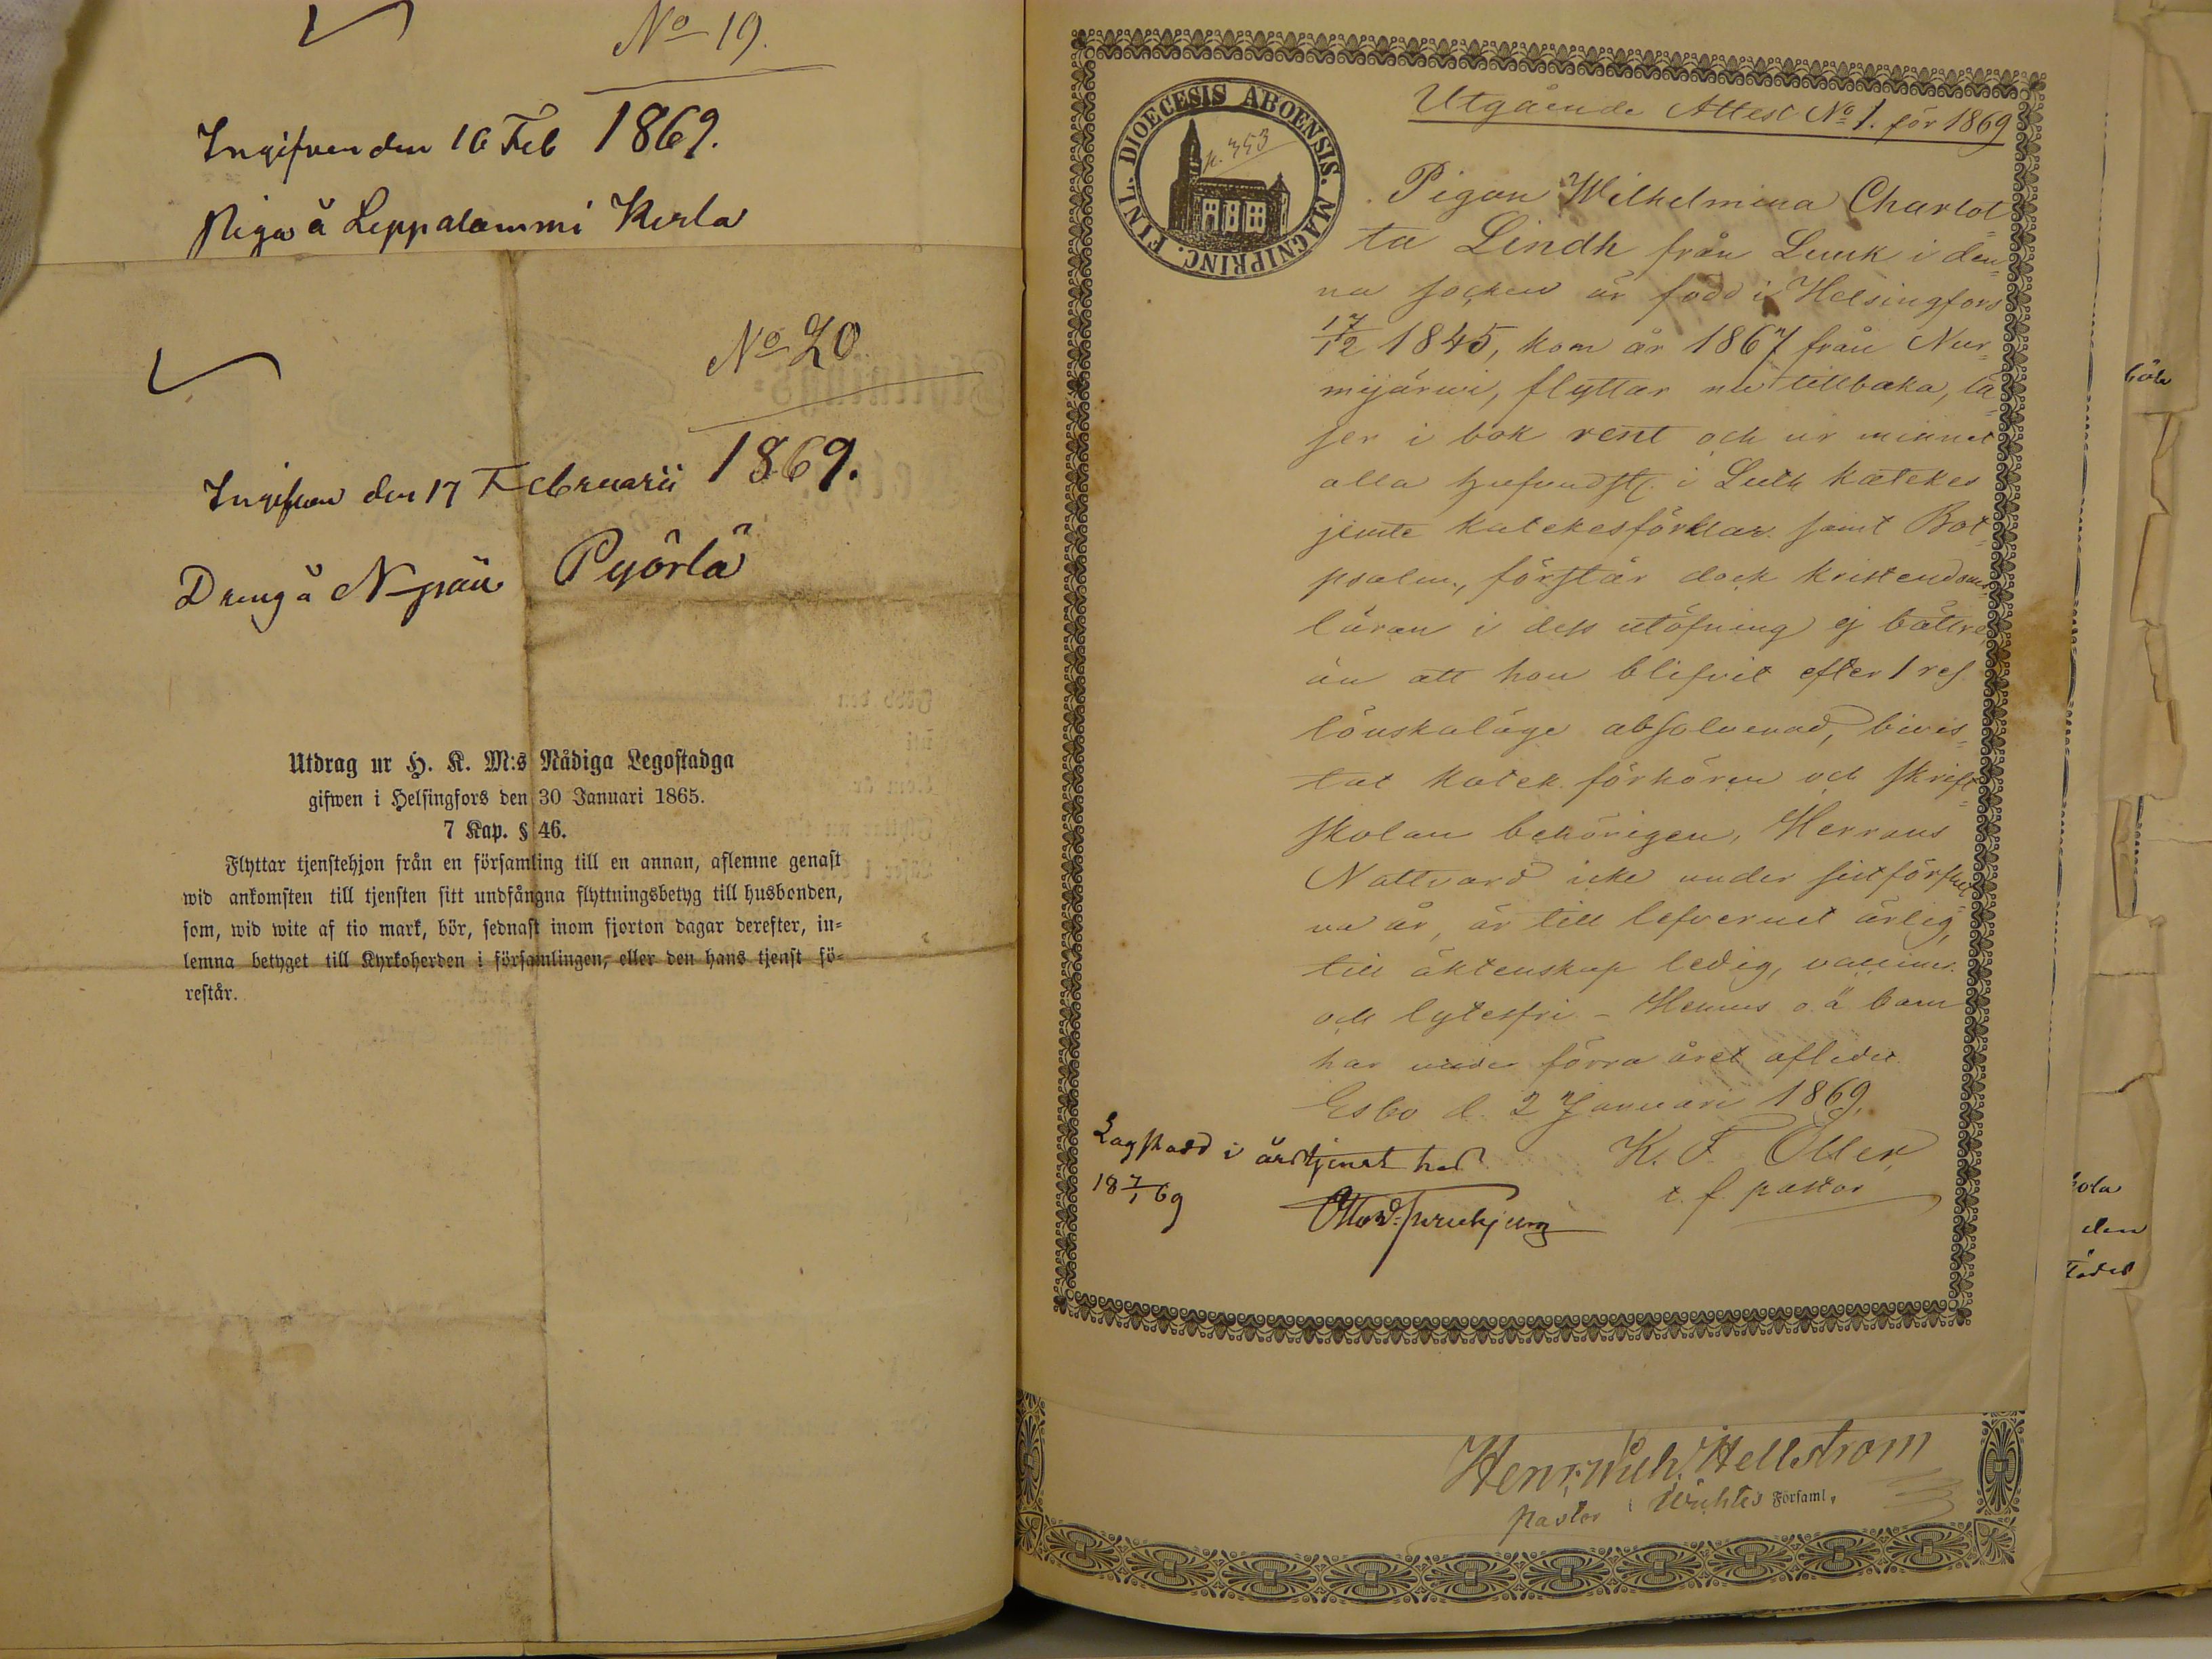 No 19.
Ingifven den 16 Feb 1869.
Piga å Leppälammi Kerla
No 20
Ingifven den 17 Februarii 1869.
Dreng å Pyörlä
Utdrag ur H. K. M:s Nådiga Legostadga
gifwen i Helsingfors den 30 Januari 1865.
7 Kap. § 46.
Flyttar tjenstehjon från en församling till en annan, aflemne genast
wid ankomsten till tjensten sitt undfångna flyttningsbetyg till husbonden,
som, wid wite af tio mark, bör, sednast inom fjorton dagar derefter, in-
lemna betyget till Kyrkoherden i församlingen, eller den hans tjenst fö-
restår.
FINL. DIOECESIS ABOENSIS. MAGNIPRINC.
p. 353
Utgående Attest No 1. för 1869
Pigan Wilhelmina Charlot-
ta Lindh från Luuk i den-
na socken är född i Helsingfors
17/12 1845, kom år 1867 från Nur-
mijärwi, flyttar nu tillbaka, lä-
ser i bok rent och ur minnet
alla hufvudst. i Luth katekes
jemte katekesförklar. samt Bot-
psalm., förstår dock kristendoms-
läran i dess utöfning ej bättre
än att hon blifvit efter 1 res
lönskaläge absolverad, bivis-
tat katek. förhören och skrift-
skolan behörigen, Herrans
Nattvard icke under sistförflut-
na år, är till lefvernet ärlig,
till äktenskap ledig,
och lytesfri - Hennes o. ä barn
har under förra året aflidit.
Esbo d. 2 Januari 1869.
K. F. Öller
t. f. pastor
Lagstadd i årstjenst hos
18 7/1 69
Henr. Wilh. Hellström
pastor i Wichtis Församl.